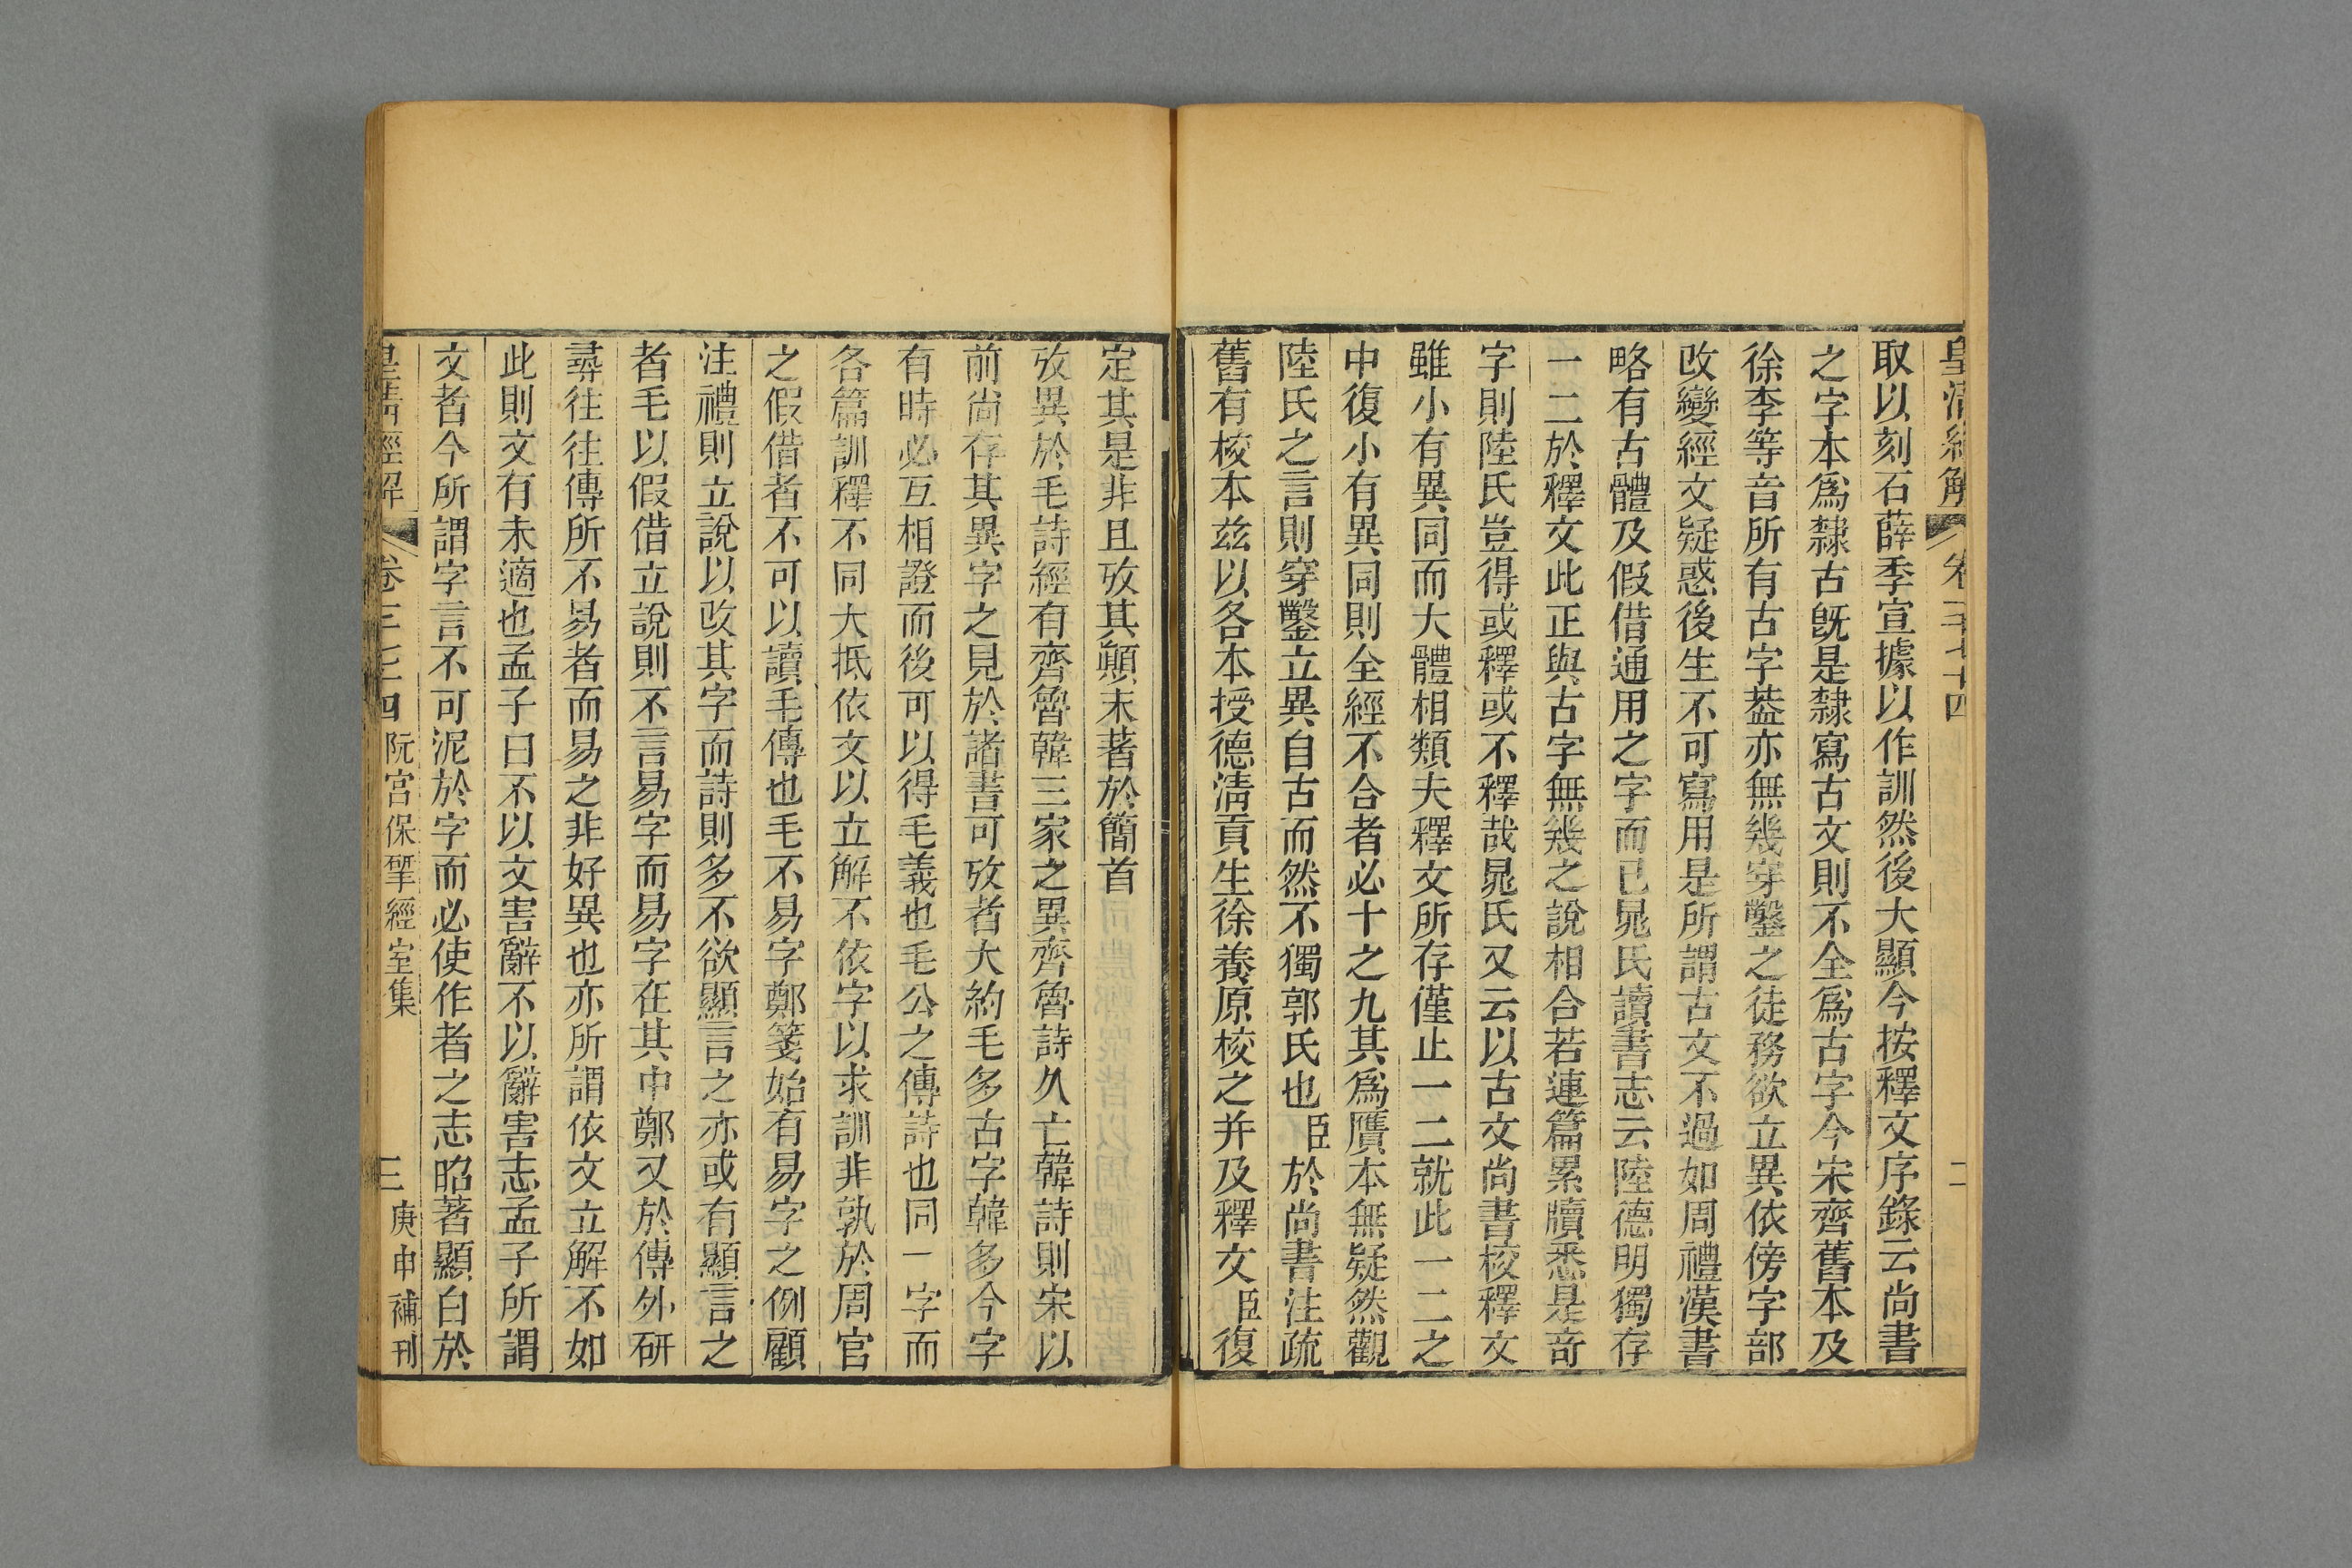 皇清經解 卷一千七十四 二
取以刻石薛季宣據以作訓然後大顯今按釋文序錄云尚書
之字本爲隸古旣是隸寫古文則不全爲古字今宋齊舊本及
徐李等音所有古字葢亦無幾穿鑿之徒務欲立異依傍字部
改變經文疑惑後生不可寫用是所謂古文不過如周禮漢書
略有古體及假借通用之字而已晁氏讀書志云陸德明獨存
一二於釋文此正與古字無幾之說相合若連篇累牘悉是竒
字則陸氏豈得或釋或不釋哉晁氏又云以古文尚書校釋文
雖小有異同而大體相類夫釋文所存僅止一二就此一二之
中復小有異同則全經不合者必十之九其爲贋本無疑然觀
陸氏之言則穿鑿立異自古而然不獨郭氏也臣於尚書注疏
舊有校本兹以各本授德淸貢生徐養原校之并及釋文臣復
定其是非且攷其顚末著於簡首
攷異於毛詩經有齊魯韓三家之異齊魯詩久亡韓詩則宋以
前尚存其異字之見於諸書可攷者大約毛多古字韓多今字
有時必互相證而後可以得毛義也毛公之傳詩也同一字而
各篇訓釋不同大抵依文以立解不依字以求訓非孰於周官
之假借者不可以讀毛傳也毛不易字鄭箋始有易字之例顧
注禮則立說以改其字而詩則多不欲顯言之亦或有顯言之
者毛以假借立說則不言易字而易字在其中鄭又於傳外研
尋往往傳所不易者而易之非好異也亦所謂依文立解不如
此則文有未適也孟子曰不以文害辭不以辭害志孟子所謂
文者今所謂字言不可泥於字而必使作者之志昭著顯白於
皇淸經解 卷 四 阮宮保揅經室集 三 庚申補刊